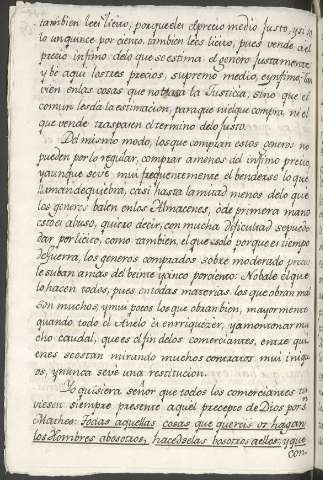 tambien leés licito, porque el es el precio medio justo, y si
lo un quince por ciento, tambien leés licito, pues vende al
precio infimo delo que se estima el genero justamente
y he aqui los tres precios, supremo medio, e ynfimo, tam
vien en las cosas que no tasa la Justicia, sino que el
comun les dá la estimacion, para que ni el que compra, ni el
que vende traspasen el termino delo justo.
Del mismo modo, los que compran estos generos no
pueden por lo regular, comprar a menos del infimo precio,
y aunque se vé mui frequentemente el benderse lo que
llaman de quiebra, casi hasta la mitad menos delo que
los generos balen en los Almacenes, ò de primera mano
esto és abuso, quiero decir, con mucha dificultad se puede
dar por licito, como tambien, el que solo porque es tiempo
de Guerra, los generos comprados sobre moderado precio
le suban a más del beinte y cinco por ciento: No bale el que
lo hacen todos, pues en todas materias los que obran mal
son muchos, y mui pocos los que obran bien, mayormente
quando todo el Anelo és enrriquezer, y amontonar mu
cho caudal, que es el fin delos comerciantes, entre qui
enes se están mirando muchos contratos mui iniqu
os, y nunca se vé una restitucion.
Yo quisiera señor que todos los comerciantes tu
viesen siempre presente aquel precepto de Dios por S.n
Matheo: Todas aquellas cosas que quereis os hagan
los Hombres abosotros, hacedselas bosotros aellos; y que
con-